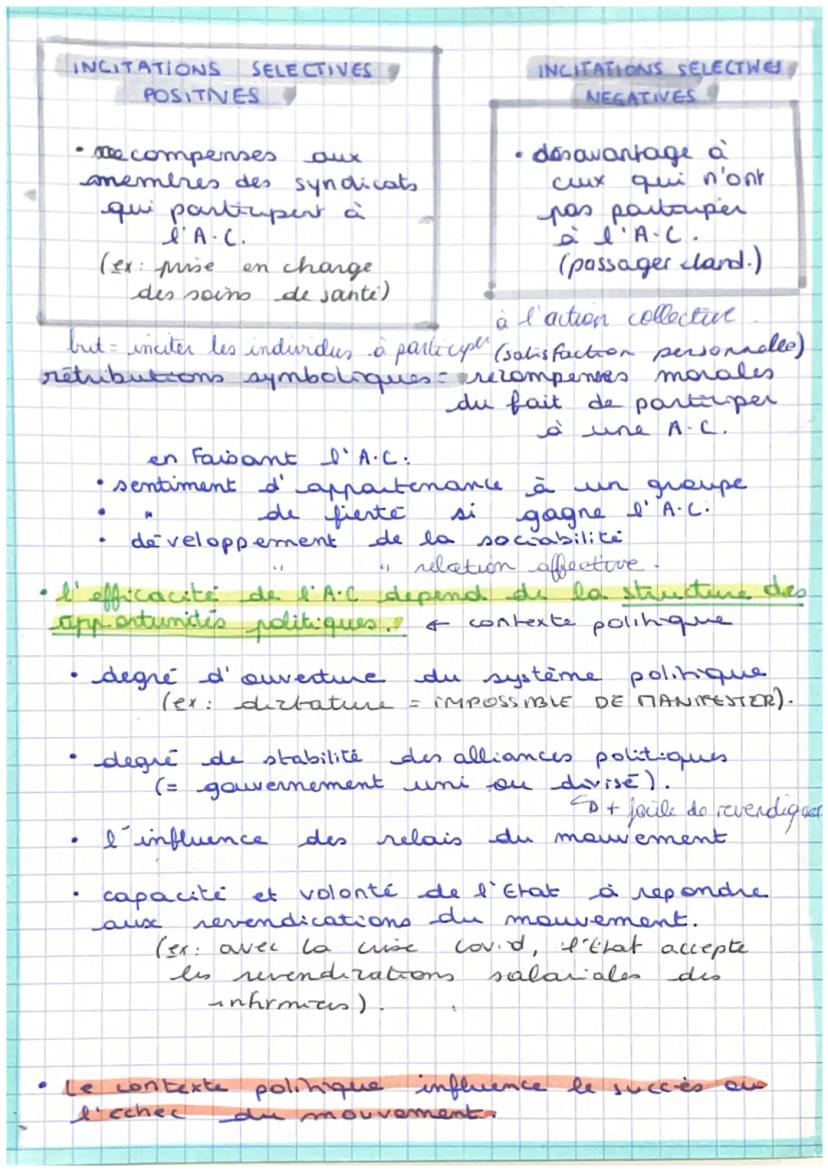 INCITATIONS SELECTIVES
POSITIVES
• recompenses aux
membres des syndicats
qui participent à
l'A.C.
(ex: prise en charge
des soins de santé)
INCITATIONS SELECTIVES
NEGATIVES
• désavantage à
ceux qui n'ont
pas participer
à l'A.C.
(passager cland.)
but = inciter les individus à participer à l'action collective.
(satisfaction personnelle)
rétributions symboliques = recompenses morales
du fait de participer
à une A.C.
en Faisant l'A.C:
• sentiment d'appartenance à un groupe
• " de fierté si gagne l'A.C.
• développement de la sociabilité
" " relation affective.
• l'efficacité de l'A.C depend de la structure des
opportunités politiques. ← contexte politique
• degré d'ouverture du système politique
(ex: dictature = IMPOSSIBLE DE MANIFESTER).
• degré de stabilité des alliances politiques
(= gouvernement uni ou divisé).
↳ + facile de revendiquer
• l'influence des relais du mouvement
• capacité et volonté de l'Etat à repondre
aux revendications du mouvement.
(ex: avec la crise covid, l'Etat accepte
les revendications salariales des
infirmières).
• Le contexte politique influence le succès ou
l'echec du mouvement.